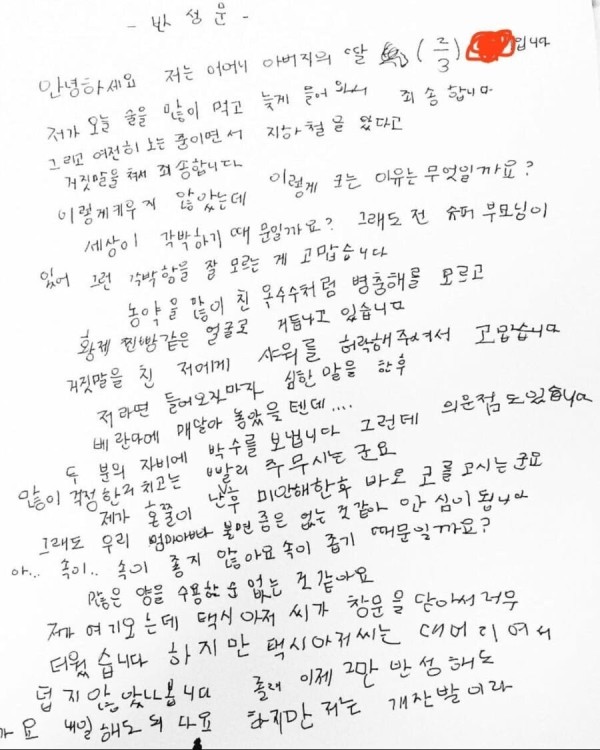 - 반성문 -
안녕하세요 저는 어머니 아버지의 딸 (2/3) 입니다
저가 오늘 술을 많이 먹고 늦게 들어와서 죄송합니다
그리고 여전히 노는 중이면서 지하철을 왔다고
거짓말을 쳐서 죄송합니다
이렇게 키우지 않았는데 이렇게 크는 이유는 무엇일까요?
세상이 각박하기 때문일까요? 그래도 전 슈퍼 부모님이
있어 그런 각박함을 잘 모르는 게 고맙습니다
농약을 많이 친 옥수수처럼 병충해를 모르고
황제 찐빵같은 얼굴로 거듭나고 있습니다
거짓말을 친 저에게 샤워를 허락해주셔서 고맙습니다
저라면 들어오자마자 심한 말을 한후
베란다에 매달아 놓았을 텐데....
두 분의 자비에 박수를 보냅니다 그런데 의문점도 있습니다
많이 걱정한거 치고는 빨리 주무시는군요
제가 혼쭐이 난후 미안해한후 바로 코를 고시는군요
그래도 우리 엄마아빠 불면증은 없는 것같아 안심이 됩니다
아... 속이.. 속이 좋지 않아요 속이 좁기 때문일까요?
많은 양을 수용할 순 없는 것 같아요
저가 여기오는데 택시아저씨가 창문을 닫아서 너무
더웠습니다 하지만 택시아저씨는 대머리여서
덥지않았나봅니다 졸래 이제 그만 반성해도
가요 내일 해도 되나요 하지만 저는 개잔발이라